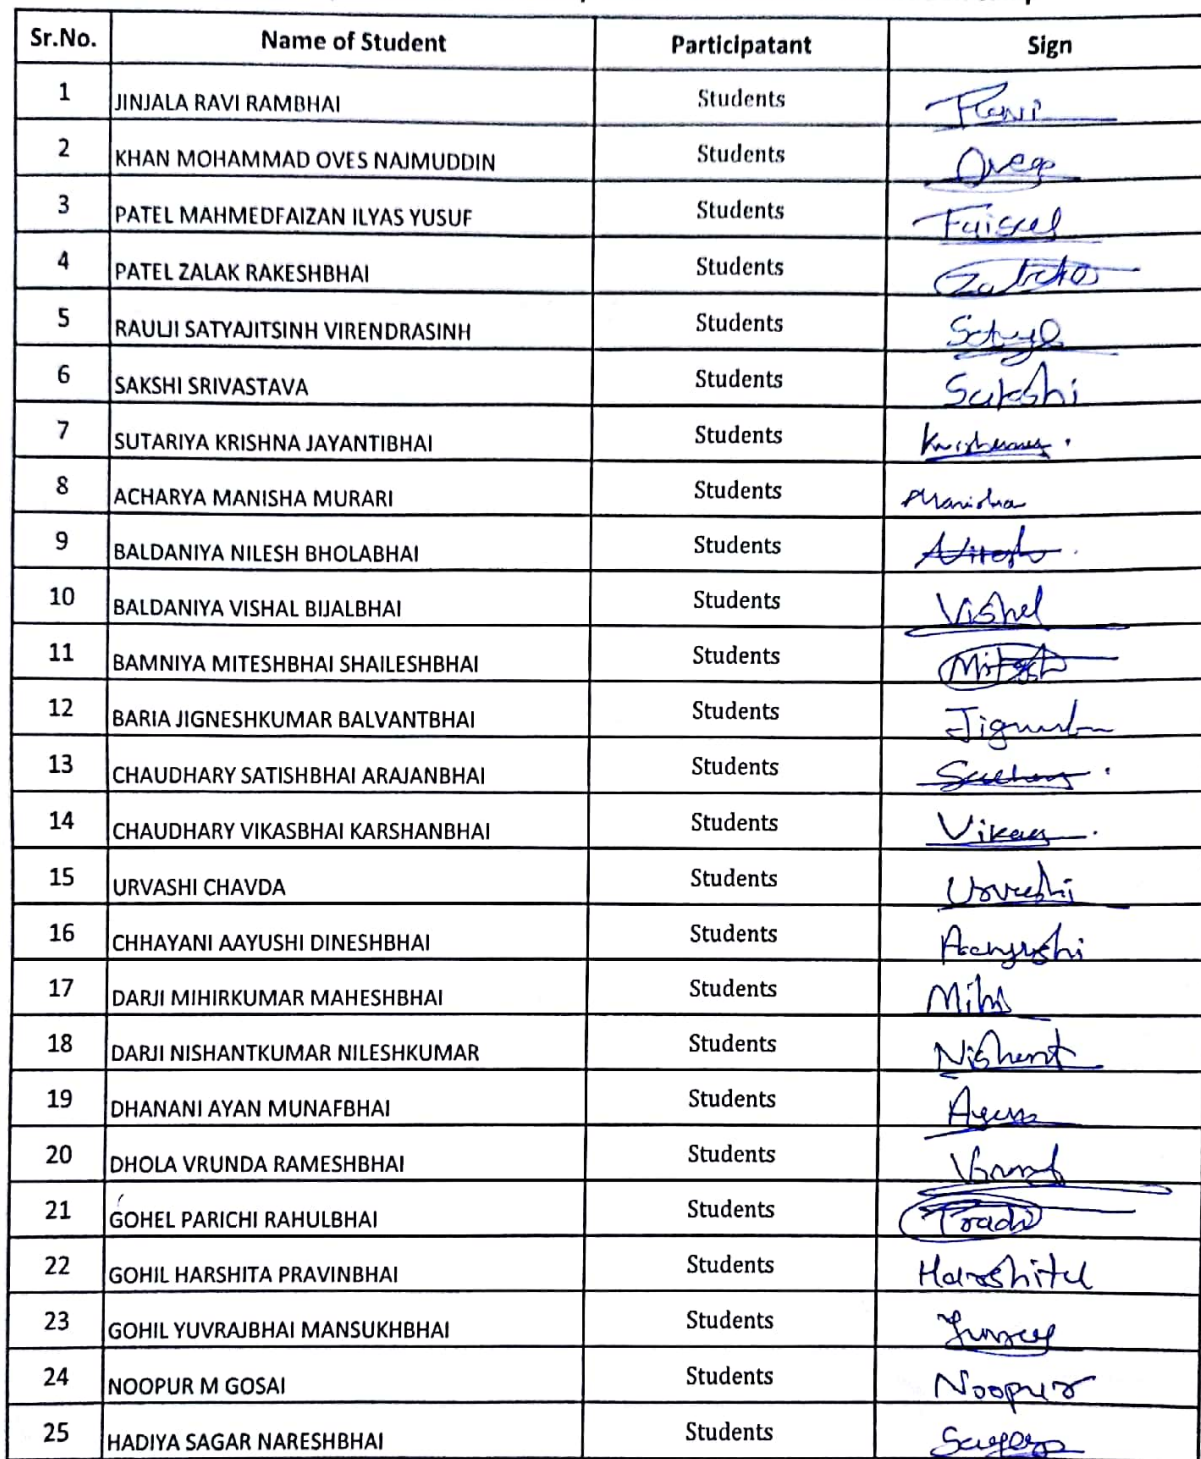 Sr.No. Name of Student Participatant Sign
1 JINJALA RAVI RAMBHAI Students Ravi
2 KHAN MOHAMMAD OVES NAJMUDDIN Students
3 PATEL MAHMEDFAIZAN ILYAS YUSUF Students
4 PATEL ZALAK RAKESHBHAI Students
5 RAULJI SATYAJITSINH VIRENDRASINH Students
6 SAKSHI SRIVASTAVA Students Sakshi
7 SUTARIYA KRISHNA JAYANTIBHAI Students
8 ACHARYA MANISHA MURARI Students Manisha
9 BALDANIYA NILESH BHOLABHAI Students
10 BALDANIYA VISHAL BIJALBHAI Students Vishal
11 BAMNIYA MITESHBHAI SHAILESHBHAI Students Mitesh
12 BARIA JIGNESHKUMAR BALVANTBHAI Students
13 CHAUDHARY SATISHBHAI ARAJANBHAI Students
14 CHAUDHARY VIKASBHAI KARSHANBHAI Students Vikas
15 URVASHI CHAVDA Students Urvashi
16 CHHAYANI AAYUSHI DINESHBHAI Students Aayushi
17 DARJI MIHIRKUMAR MAHESHBHAI Students
18 DARJI NISHANTKUMAR NILESHKUMAR Students Nishant
19 DHANANI AYAN MUNAFBHAI Students
20 DHOLA VRUNDA RAMESHBHAI Students
21 GOHEL PARICHI RAHULBHAI Students
22 GOHIL HARSHITA PRAVINBHAI Students Harshita
23 GOHIL YUVRAJBHAI MANSUKHBHAI Students
24 NOOPUR M GOSAI Students Noopur
25 HADIYA SAGAR NARESHBHAI Students